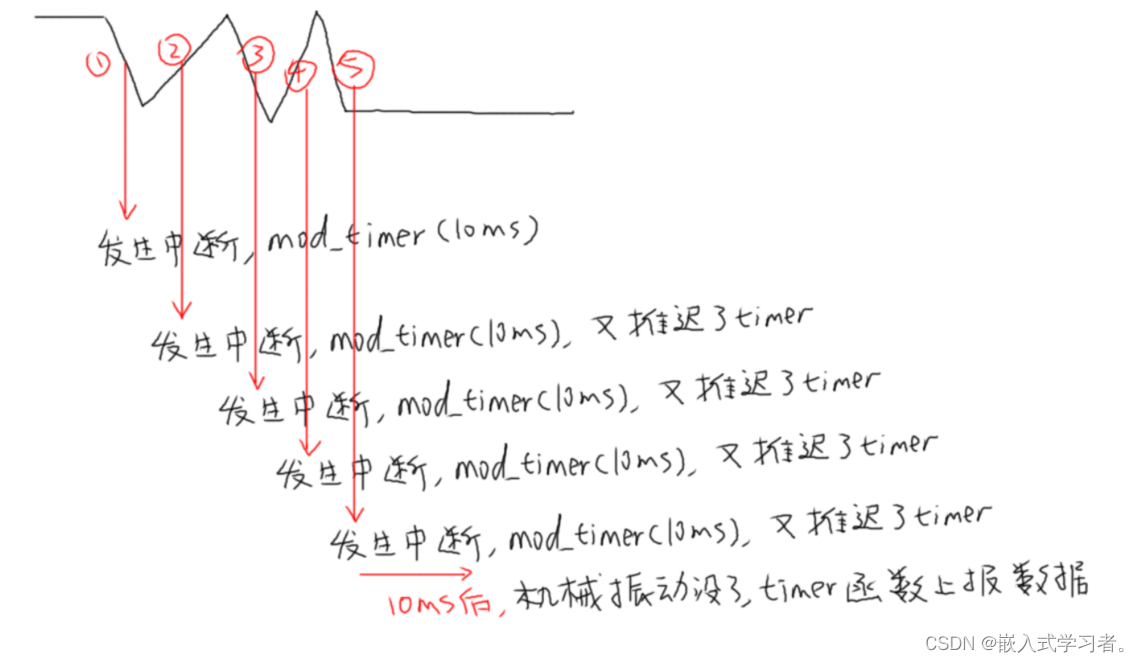 ① ② ③ ④ ⑤
发生中断, mod_timer(10ms)
发生中断, mod_timer(10ms), 又推迟了timer
发生中断, mod_timer(10ms), 又推迟了timer
发生中断, mod_timer(10ms), 又推迟了timer
发生中断, mod_timer(10ms), 又推迟了timer
10ms后, 机械振动没了, timer函数上报数据
CSDN @嵌入式学习者。